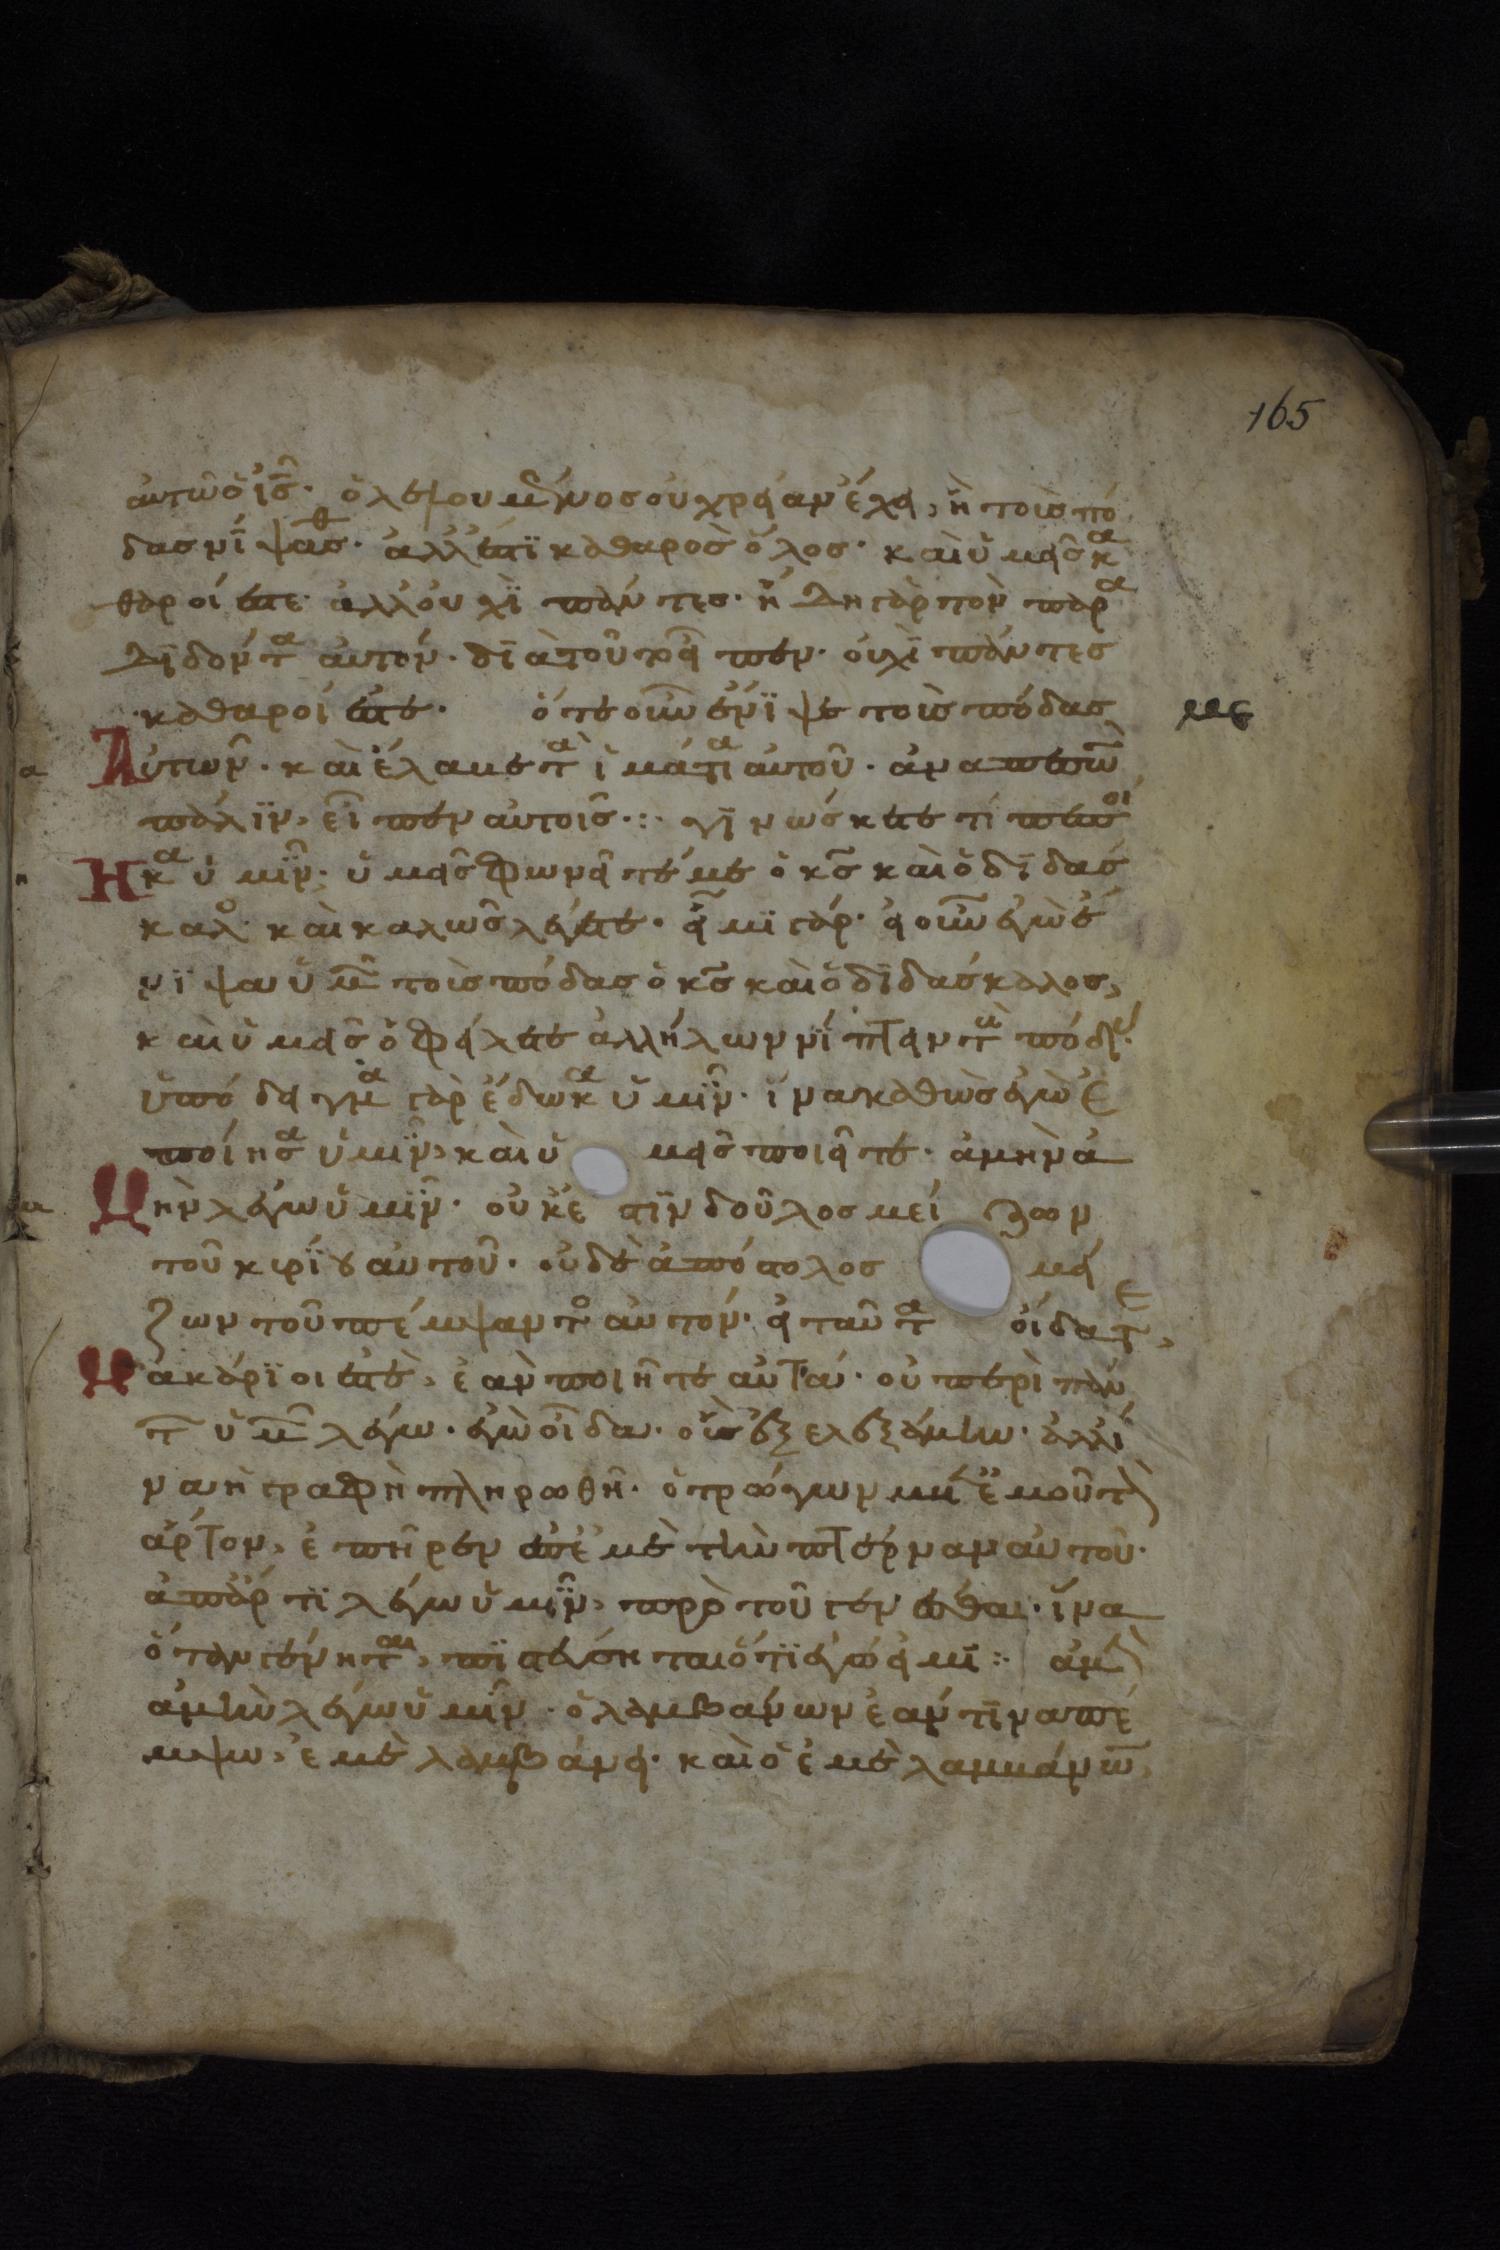 165
αὐτῶ ὁ ἰς̅· ὁ λελουμένος οὐ χρείαν ἔχει, ἢ τοὺς πό
δας νίψασθ· ἀλλ' ἔστϊ καθαρὸς ὅλος· καὶ ὑμεῖς κα
θαροί ἐστε· ἀλλ' οὐχῒ πάντες· ἤδη γὰρ τὸν παρα
διδόντα αὐτόν· δϊὰ τοῦτο εἶπεν· οὐχῒ πάντες
καθαροί ἐστε· ὅτε οὖν ἔνϊψε τοὺς πόδας
με
Αὐτῶν· καὶ ἔλαμε τὰ ἱμάτια αὐτοῦ· ἀναπεσὼν
πάλϊν, εἶπεν αὐτοῖς·:· γϊνώσκετε τί πεποί
Ηκα ὑμῖν· ὑμεῖς φωνεῖτέ με ὁ κς̅ καὶ ὁ δϊδάσ
καλο· καὶ καλῶς λέγετε· εἶμϊ γάρ· εἰ οὖν ἐγὼ ἔ
νϊψα ὑμῶν τοὺς πόδας ὁ κς̅ καὶ ὁ δϊδάσκαλος,
καὶ ὑμεῖς ὀφείλετε ἀλλήλων νίπτειν τοὺς πόδας·
ὑπόδειγμα γὰρ ἔδωκα ὑμῖν· ἵνα καθὼς ἐγὼ ἐ
ποίησα ὑμῖν, καὶ ὑμεῖς ποιεῖτε· ἀμὴν ἀ
Μὴν λέγω ὑμῖν· οὐκ ἔστϊν δοῦλος μείζων
τοῦ κυρϊου αὐτοῦ· οὐδὲ ἀπόστολος μεί
ζων τοῦ πέμψαντο αὐτόν· εἰ ταῦτα οἴδατε,
Μακάρϊοι ἐστὲ, ἐὰν ποιῆτε αὐτά· οὐ περὶ πάν
τ ὑμῶν λέγω· ἐγὼ οἶδα· οὓς ἐξελεξάμην· ἀλλ' ἵ
να ἡ γραφὴ πληρωθῆ· ὁ τρώγων μετ' ἐμοῦ τὸν
ἄρτον, ἐπῆρεν ἐπ' ἐμὲ τὴν πτέρναν αὐτοῦ·
ἀπάρτϊ λέγω ὑμῖν, πρὸ τοῦ γενέσθαι· ἵνα
ὅταν γένηται, πϊστεύσηται ὅτϊ ἐγώ εἰμϊ :· ἀμὴν
ἀμὴν λέγω ὑμῖν· ὁ λαμβάνων ἐάν τϊνα πέ
μψω, ἐμὲ λαμβάνει· καὶ ὁ ἐμὲ λαμμάνων,